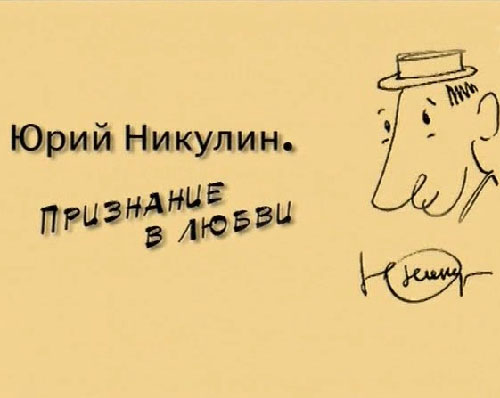 Юрий Никулин.
ПРИЗНАНИЕ
В ЛЮБВИ